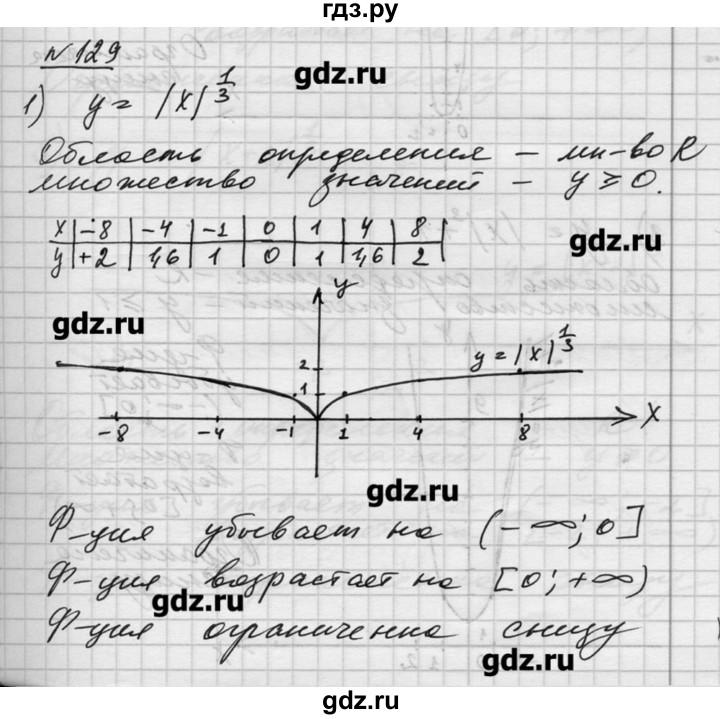 гдз.ру
№129
gdz.ru
1) y = |x|^{1/3}
Область определения – мн-во R
множество значений – y ≥ 0.
x | -8 | -4 | -1 | 0 | 1 | 4 | 8
y | +2 | 1,6 | 1 | 0 | 1 | 1,6 | 2
gdz.ru
y
gdz.ru
y = |x|^{1/3}
2
1
-8 -4 -1 1 4 8 X
gdz.ru
Ф-ция убывает на (-∞; 0]
Ф-ция возрастает на [0; +∞)
gdz.ru
Ф-ция ограничена снизу
gdz.ru
gdz.ru